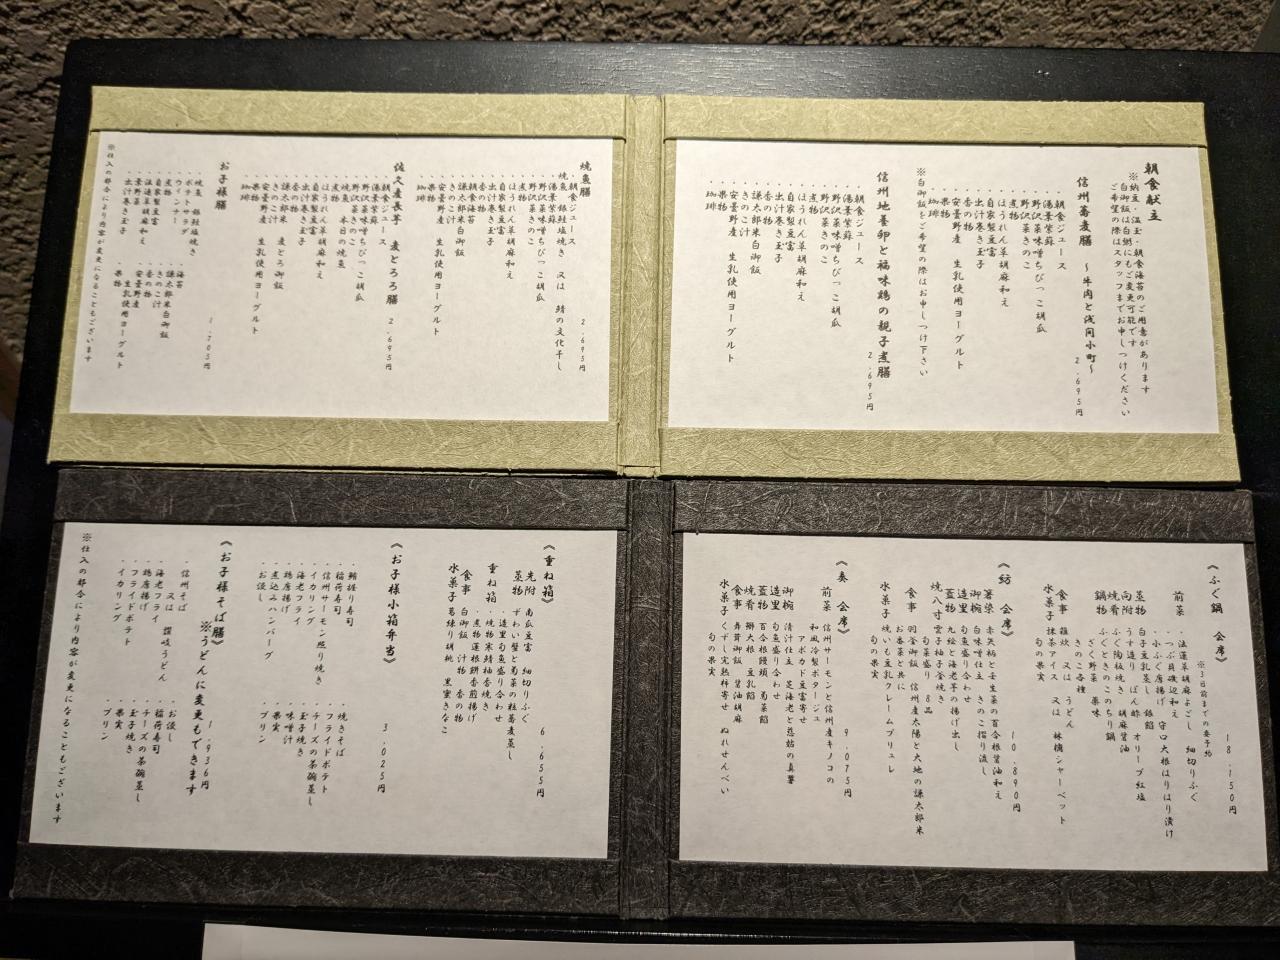 朝食献立
※納豆・温玉・朝食海苔のご用意があります
白御飯は白粥にもご変更可能です
ご希望の際はスタッフまでお申しつけください
信州蕎麦膳 ～牛肉と浅間小町～
2,695円
・朝食ジュース
・湯葉紫蘇
・野沢菜味噌ちびっこ胡瓜
・野沢菜きのこ
・煮物
・ほうれん草胡麻和え
・自家製豆富
・出汁巻き玉子
・香の物
・安曇野産 生乳使用ヨーグルト
・果物
・珈琲
※白御飯をご希望の際はお申しつけ下さい
信州地養卵と福味鶏の親子煮膳
2,695円
・朝食ジュース
・湯葉紫蘇
・野沢菜味噌ちびっこ胡瓜
・野沢菜きのこ
・煮物
・ほうれん草胡麻和え
・自家製豆富
・出汁巻き玉子
・香の物
・謙太郎米白御飯
・きのこ汁
・安曇野産 生乳使用ヨーグルト
・果物
・珈琲
焼魚膳
2,695円
・朝食ジュース
・焼魚 銀鮭塩焼き 又は 鯖の文化干し
・湯葉紫蘇
・野沢菜味噌ちびっこ胡瓜
・野沢菜きのこ
・煮物
・ほうれん草胡麻和え
・自家製豆富
・出汁巻き玉子
・香の物
・朝食海苔
・謙太郎米白御飯
・きのこ汁
・安曇野産 生乳使用ヨーグルト
・果物
・珈琲
佐久麦長芋 麦とろろ膳
2,695円
・朝食ジュース
・湯葉紫蘇
・野沢菜味噌ちびっこ胡瓜
・野沢菜きのこ
・焼魚 本日の焼魚
・煮物
・ほうれん草胡麻和え
・自家製豆富
・出汁巻き玉子
・香の物
・謙太郎米 麦とろ御飯
・きのこ汁
・安曇野産 生乳使用ヨーグルト
・果物
・珈琲
お子様膳
1,705円
・焼魚 銀鮭塩焼き
・ポテトサラダ
・ウィンナー
・煮物
・自家製豆富
・法蓮草胡麻和え
・葉野菜
・出汁巻き玉子
・海苔
・謙太郎米白御飯
・きのこ汁
・香の物
・安曇野産 生乳使用ヨーグルト
・果物
※仕入の都合により内容が変更になることもございます
《ふぐ鍋 会席》
※3日前までの要予約
18,150円
前菜 ・法蓮草胡麻よごし 細切りふぐ
・つぶ貝磯辺和え
・小ふぐ唐揚げ 守口大根はりはり漬け
蒸物 白子豆乳蒸し 銀餡
向附 うす造り ぽん酢 オリーブ紅塩
焼肴 ふぐ陶板焼き 胡麻醤油
鍋物 ふぐときのこのちり鍋
きのこ各種
ざく野菜 薬味
食事 雑炊 又は うどん
水菓子 抹茶アイス 又は 林檎シャーベット
旬の果実
《紡 会席》
10,890円
箸染 赤矢柄と壬生菜の百合根醤油和え
御椀 白味噌仕立 きのこ摺り流し
造里 旬魚盛り合わせ
蓋物 九絵と海老芋の揚げ出し
焼八寸 雲子柚子釜焼き
旬菜盛り 8品
食事 羽釜御飯 信州産太陽と大地の謙太郎米
お番菜と共に
水菓子 焼いも豆乳クレームブリュレ
旬の果実
《奏 会席》
9,075円
前菜 信州サーモンと信州産キノコの
和風冷製ポタージュ
アボカド豆富寄せ
御椀 清汁仕立 芝海老と慈姑の真薯
造里 旬魚盛り合わせ
蓋物 百合根饅頭 菊菜餡
焼肴 鰤大根 豆乳餡
食事 舞茸御飯 醤油胡麻
水菓子 くずし完熟柿寄せ ぬれせんべい
旬の果実
《重ね箱》
6,655円
先附 南瓜豆富 細切りふぐ
蒸物 ずわい蟹と菊菜の粒蕎麦蒸し
重ね箱 ・造里 旬魚盛り合わせ
・焼物 寒鯖柚香焼き
・煮物 蓮根餅香煎揚げ
食事 白御飯 汁物 香の物
水菓子 葛練り胡桃 黒蜜きなこ
《お子様小箱弁当》
3,025円
・鮪握り寿司
・稲荷寿司
・信州サーモン照り焼き
・イカリング
・海老フライ
・鶏唐揚げ
・煮込みハンバーグ
・お浸し
・焼きそば
・フライドポテト
・チーズの茶碗蒸し
・玉子焼き
・味噌汁
・果実
・プリン
《お子様そば膳》
※うどんに変更もできます
1,936円
・信州そば
又は 讃岐うどん
・海老フライ
・鶏唐揚げ
・フライドポテト
・イカリング
・お浸し
・稲荷寿司
・チーズの茶碗蒸し
・玉子焼き
・果実
・プリン
※仕入の都合により内容が変更になることもございます